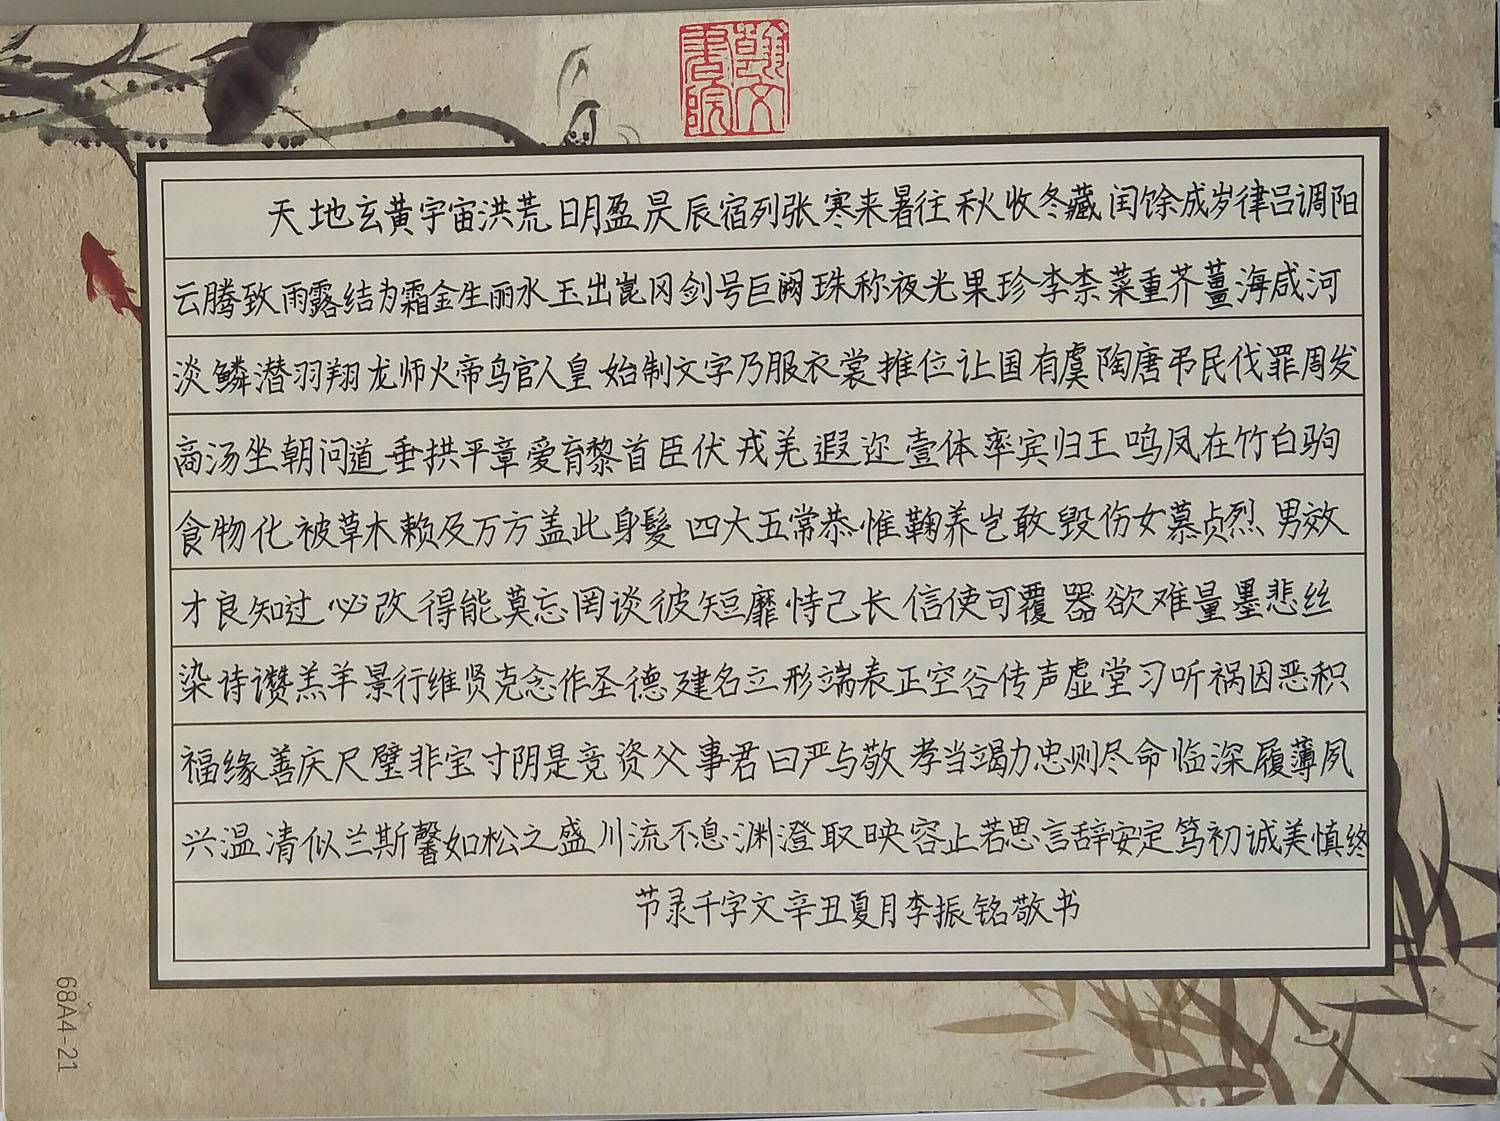 翰文書院
天地玄黄宇宙洪荒日月盈昃辰宿列张寒来暑往秋收冬藏闰馀成岁律吕调阳
云腾致雨露结为霜金生丽水玉出崑冈剑号巨阙珠称夜光果珍李柰菜重芥薑海咸河
淡鳞潜羽翔龙师火帝鸟官人皇始制文字乃服衣裳推位让国有虞陶唐弔民伐罪周发
商汤坐朝问道垂拱平章爱育黎首臣伏戎羌遐迩壹体率宾归王鸣凤在竹白驹
食物化被草木赖及万方盖此身髮四大五常恭惟鞠养岂敢毁伤女慕贞烈男效
才良知过必改得能莫忘罔谈彼短靡恃己长信使可覆器欲难量墨悲丝
染诗讚羔羊景行维贤克念作圣德建名立形端表正空谷传声虚堂习听祸因恶积
福缘善庆尺璧非宝寸阴是竞资父事君曰严与敬孝当竭力忠则尽命临深履薄夙
兴温凊似兰斯馨如松之盛川流不息渊澄取映容止若思言辞安定笃初诚美慎终
节录千字文辛丑夏月李振铭敬书
68A4-21